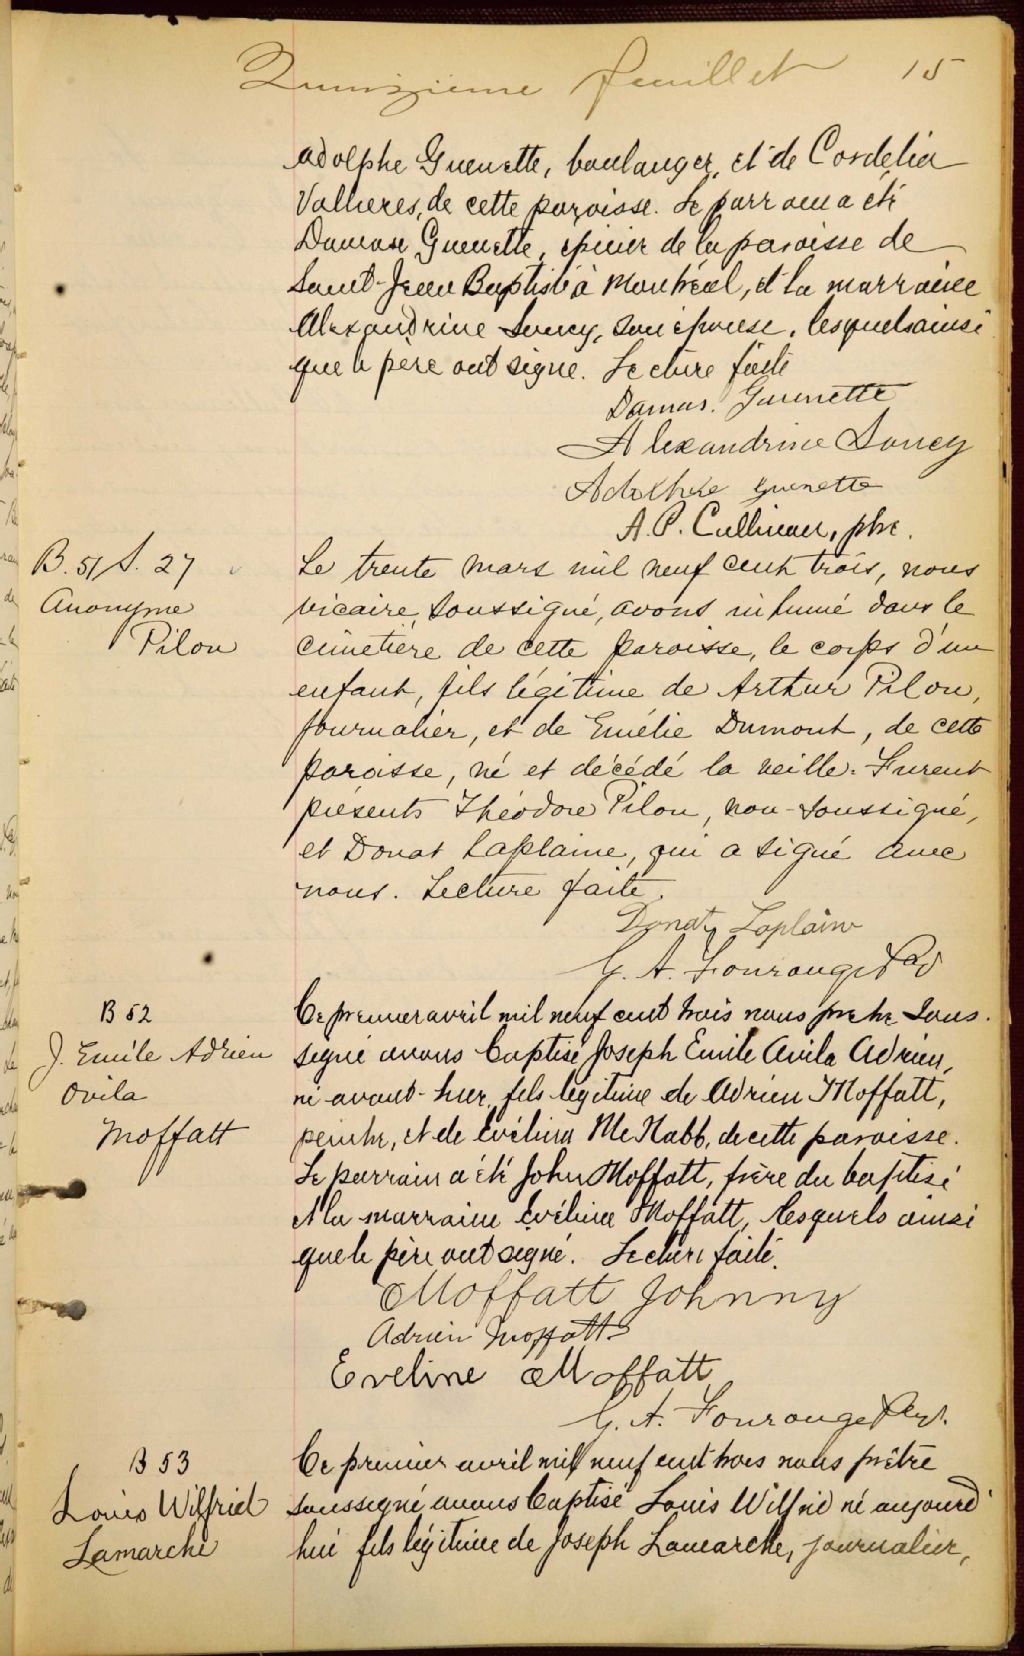 Quinzième feuillet 15
Adolphe Guenette, boulanger, et de Cordélia
Vallieres, de cette paroisse. Le parrain a été
Damase Guenette, épicier de la paroisse de
Saint-Jean Baptiste à Montréal, et la marraine
Alexandrine Soucy, son épouse, lesquels ainsi
que le père ont signé. Lecture faite
Damas. Guenette
Alexandrine Soucy
Adolphe Guenette
A. P. Cullinan, ptre.
B. 51 S. 27
Anonyme
Pilon
Le trente mars mil neuf cent trois, nous
vicaire, soussigné, avons inhumé dans le
cimetière de cette paroisse, le corps d'un
enfant, fils légitime de Arthur Pilon,
journalier, et de Emélie Dumont, de cette
paroisse, né et décédé la veille. Furent
présents Théodore Pilon, non-soussigné,
et Donat Laplaine, qui a signé avec
nous. Lecture faite.
Donat Laplaine
G. A. Fourouge
B 52
J. Emile Adrien
Ovila
Moffatt
Ce premier avril mil neuf cent trois nous prêtre sous.
signé avons baptisé Joseph Emile Avila Adrien,
né avant-hier, fils légitime de Adrien Moffatt,
peintre, et de Evélina McNabb, de cette paroisse.
Le parrain a été John Moffatt, frère du baptisé
et la marraine Evéline Moffatt, lesquels ainsi
que le père ont signé. Lecture faite.
Moffatt Johnny
Adrien Moffatt
Eveline Moffatt
G. A. Fourouge
B 53
Louis Wilfrid
Lamarche
Ce premier avril mil neuf cent trois nous prêtre
soussigné avons baptisé Louis Wilfrid né aujourd'
hui fils légitime de Joseph Lamarche, journalier,